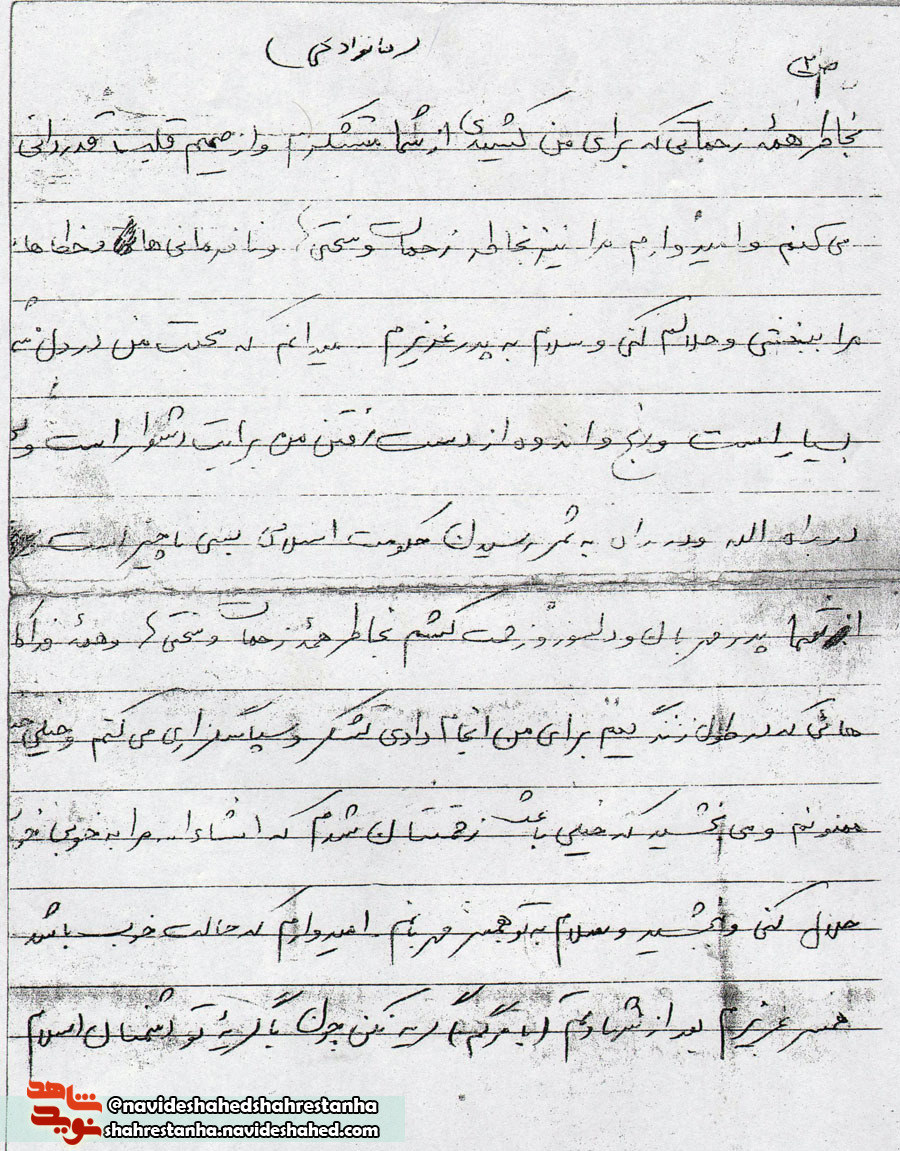 (خانوادگی)
ص ۲
بخاطر همهٔ زحماتی که برای من کشیدی از شما متشکرم و از صمیم قلب قدردانی
می کنم و امیدوارم مرا نیز بخاطر زحمات و سختی‌ها و نافرمانی ها و خطاها
مرا ببخشی و حلالم کنی و سلام به پدر عزیزم. میدانم که محبت من در دل
بسیار است و رنج و اندوه از دست رفتن من برایت دشوار است و
در راه الله و در راه به ثمر رسیدن حکومت اسلامی بسی ناچیز است
از شما پدر مهربان و دلسوز و زحمت کشم بخاطر همهٔ زحمات و سختی‌ها و همهٔ فداکا
هائی که در طول زندگیم برای من انجام دادی تشکر و سپاسگزاری می کنم و خیلی
ممنونم و می بخشید که خیلی باعث زحمتتان شدم که انشاءا... مرا به خوبی
حلال کنی و بخشید و سلام به تو همسر مهربانم. امیدوارم که حالت خوب باشد
همسر عزیزم بعد از شهادتم (یا مرگم) گریه نکن چون با گریهٔ تو دشمنان اسلام
نوید شاهد
@navideshahedshahrestanha
shahrestanha.navideshahed.com